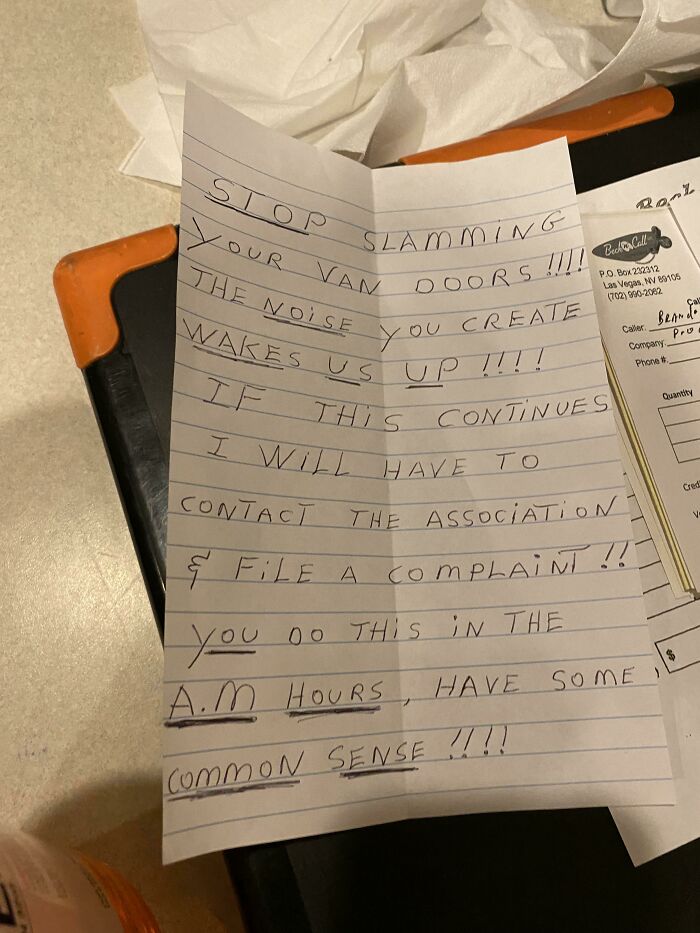 STOP SLAMMING
YOUR VAN DOORS !!!!
THE NOiSE YOU CREATE
WAKES US UP !!!!
IF THiS CONTiNUES
I WiLL HAVE TO
CONTACT THE ASSOCiATiON
& FiLE A COMPLAiNT !!
YOU DO THiS iN THE
A.M HOURS, HAVE SOME
COMMON SENSE !!!!
Beck Call
P.O. Box 232312
Las Vegas, NV 89105
(702) 990-2062
Caller:
Company:
Phone #:
Quantity
Cred
$